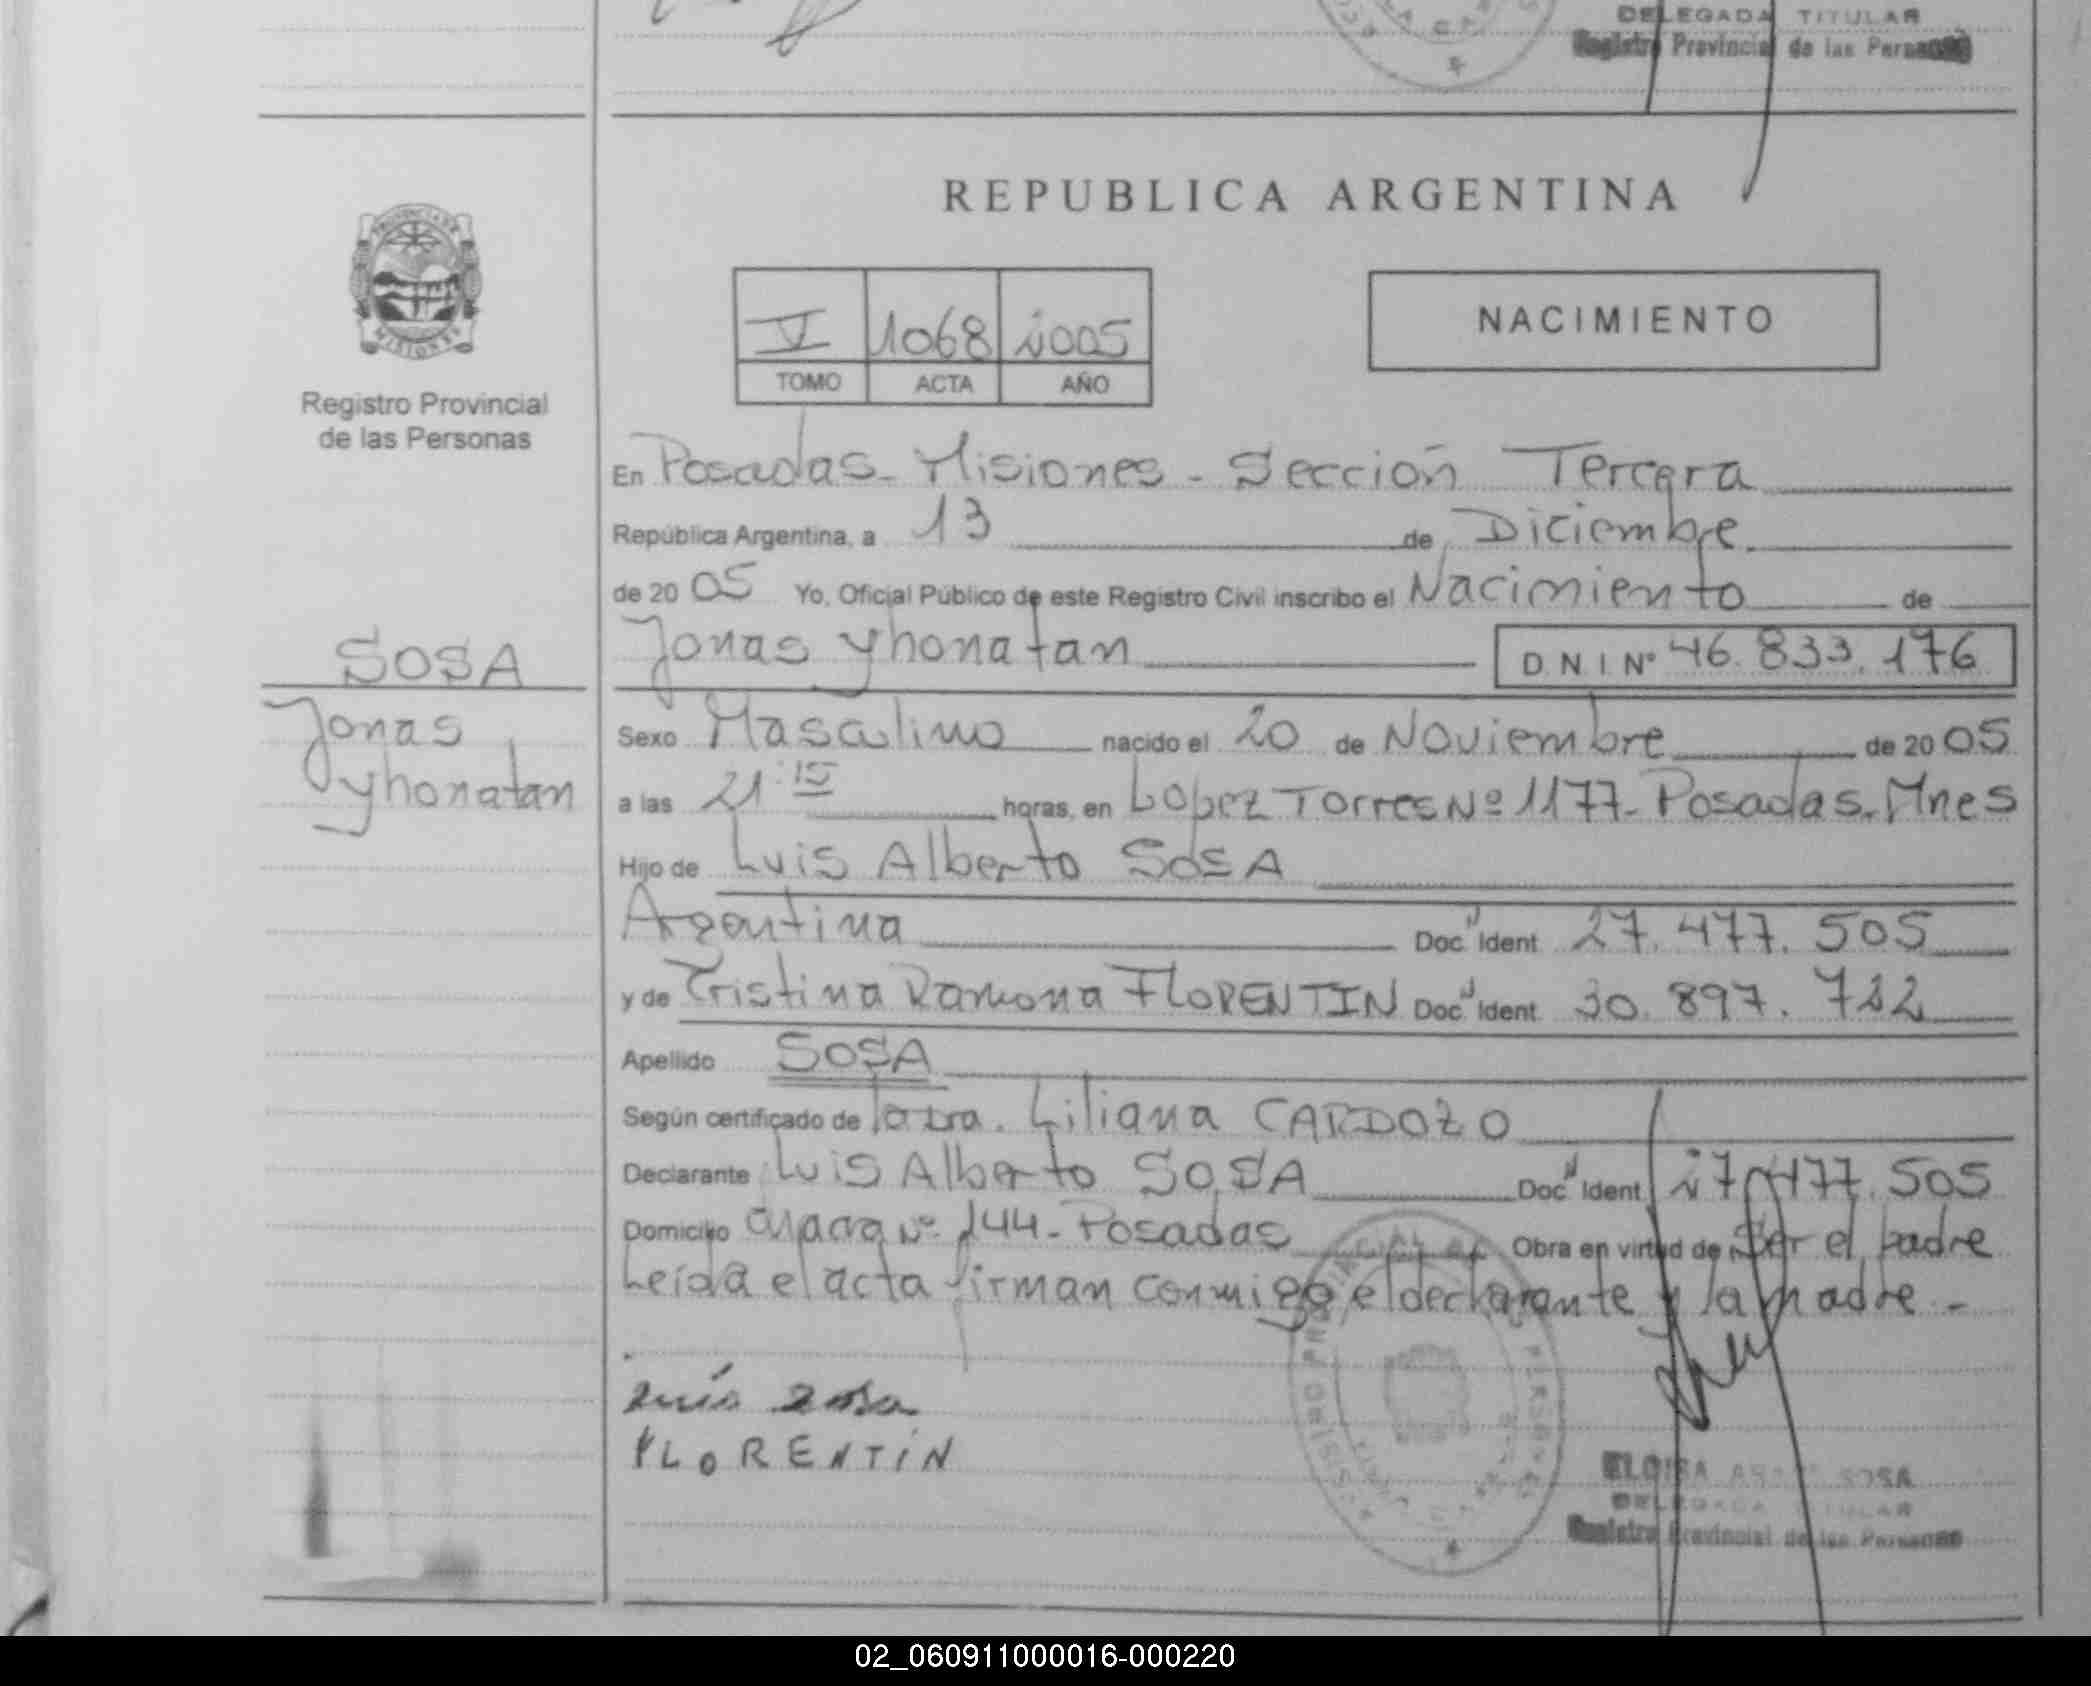 DELEGADA TITULAR
Registro Provincial de las Personas
REPUBLICA ARGENTINA
PROVINCIA DE
MISIONES
V 1068 2005
TOMO ACTA AÑO
NACIMIENTO
Registro Provincial
de las Personas
En Posadas - Misiones - Sección Tercera
República Argentina, a 13 de Diciembre
de 20 05 Yo, Oficial Público de este Registro Civil inscribo el Nacimiento de
SOSA
Jonas Yhonatan D.N.I Nº 46.833.176
Jonas
Yhonatan
Sexo Masculino nacido el 20 de Noviembre de 20 05
a las 21:15 horas, en Lopez Torres Nº 1177 - Posadas - Mnes
Hijo de Luis Alberto SOSA
Argentina Doc Ident 27.477.505
y de Cristina Ramona FLORENTIN Doc Ident 30.897.722
Apellido SOSA
Según certificado de la Dra. Liliana CARDOZO
Declarante Luis Alberto SOSA Doc Ident 27.477.505
Domicilio Nº 244 - Posadas Obra en virtud de Ser el padre
Leída el acta firman conmigo el declarante y la madre -
Luis Sosa
FLORENTIN
ELOISA SOSA
DELEGADA TITULAR
Registro Provincial de las Personas
02_060911000016-000220